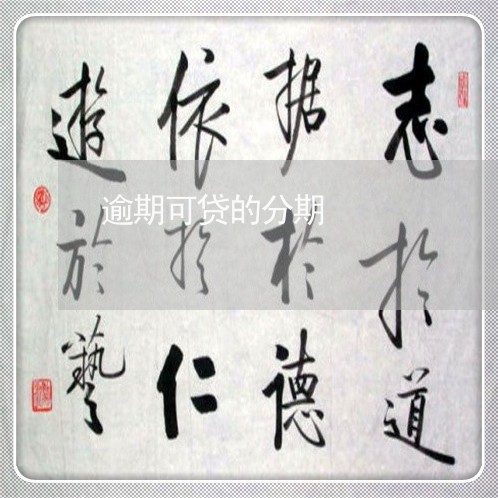 志於道
据於德
依於仁
遊於藝
逾期可贷的分期